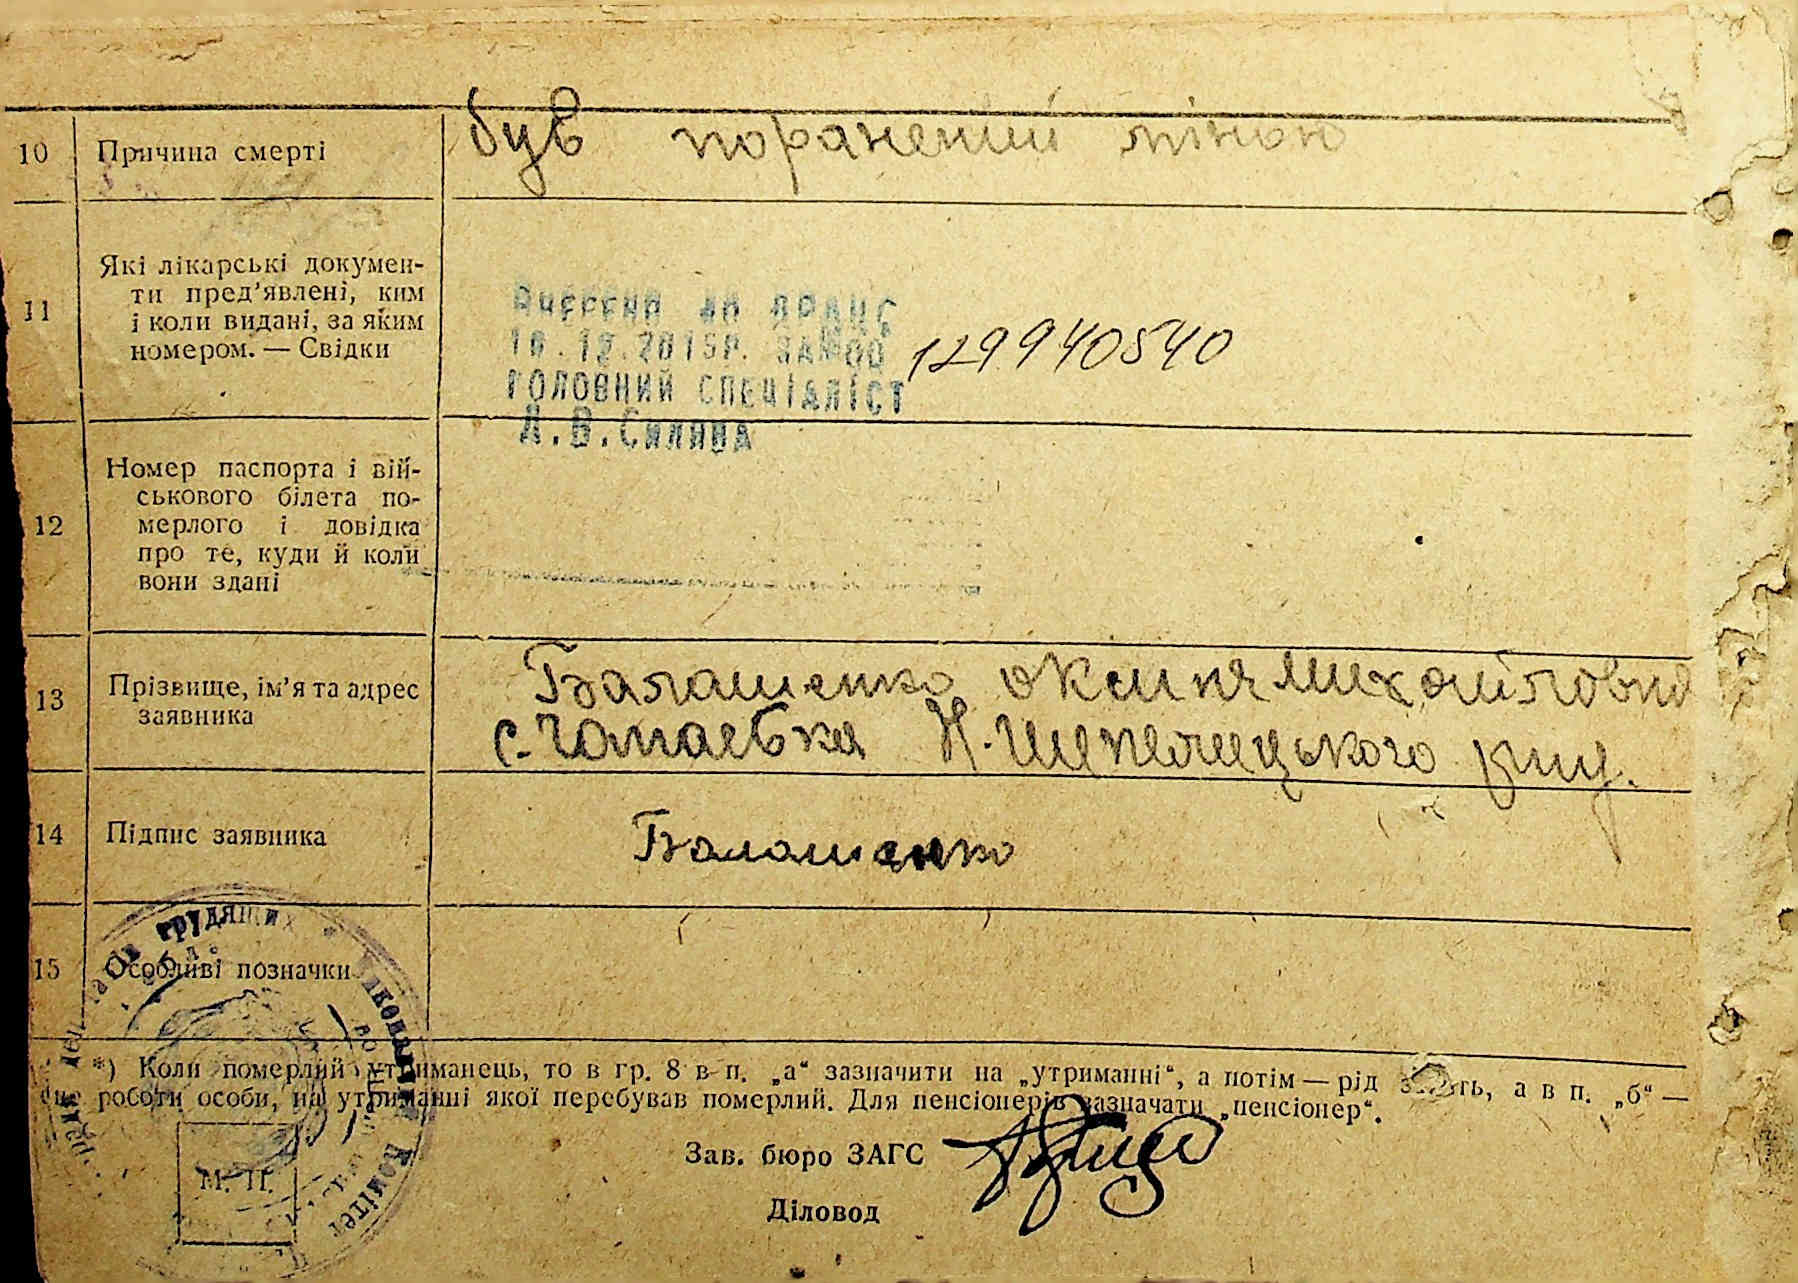 10 Причина смерті був поранений міною
11 Які лікарські докумен-
ти пред'явлені, ким
і коли видані, за яким
номером. — Свідки
ВНЕСЕНО ДО ДРАЦС
12.2015Р. ЗА №00 129940540
ГОЛОВНИЙ СПЕЦІАЛІСТ
12 Номер паспорта і вій-
ськового білета по-
мерлого і довідка
про те, куди й коли
вони здані
13 Прізвище, ім'я та адрес
заявника
Балашенко Михайловна
с. Чапаєвка
14 Підпис заявника Балашенко
15 Особливі позначки
*) Коли померлий утриманець, то в гр. 8 в п. „а“ зазначити на „утриманні“, а потім — рід а в п. „б“ —
роботи особи, на утриманні якої перебував померлий. Для пенсіонерів зазначати „пенсіонер“.
Зав. бюро ЗАГС
Діловод
М. П.
трудящих
Комітет